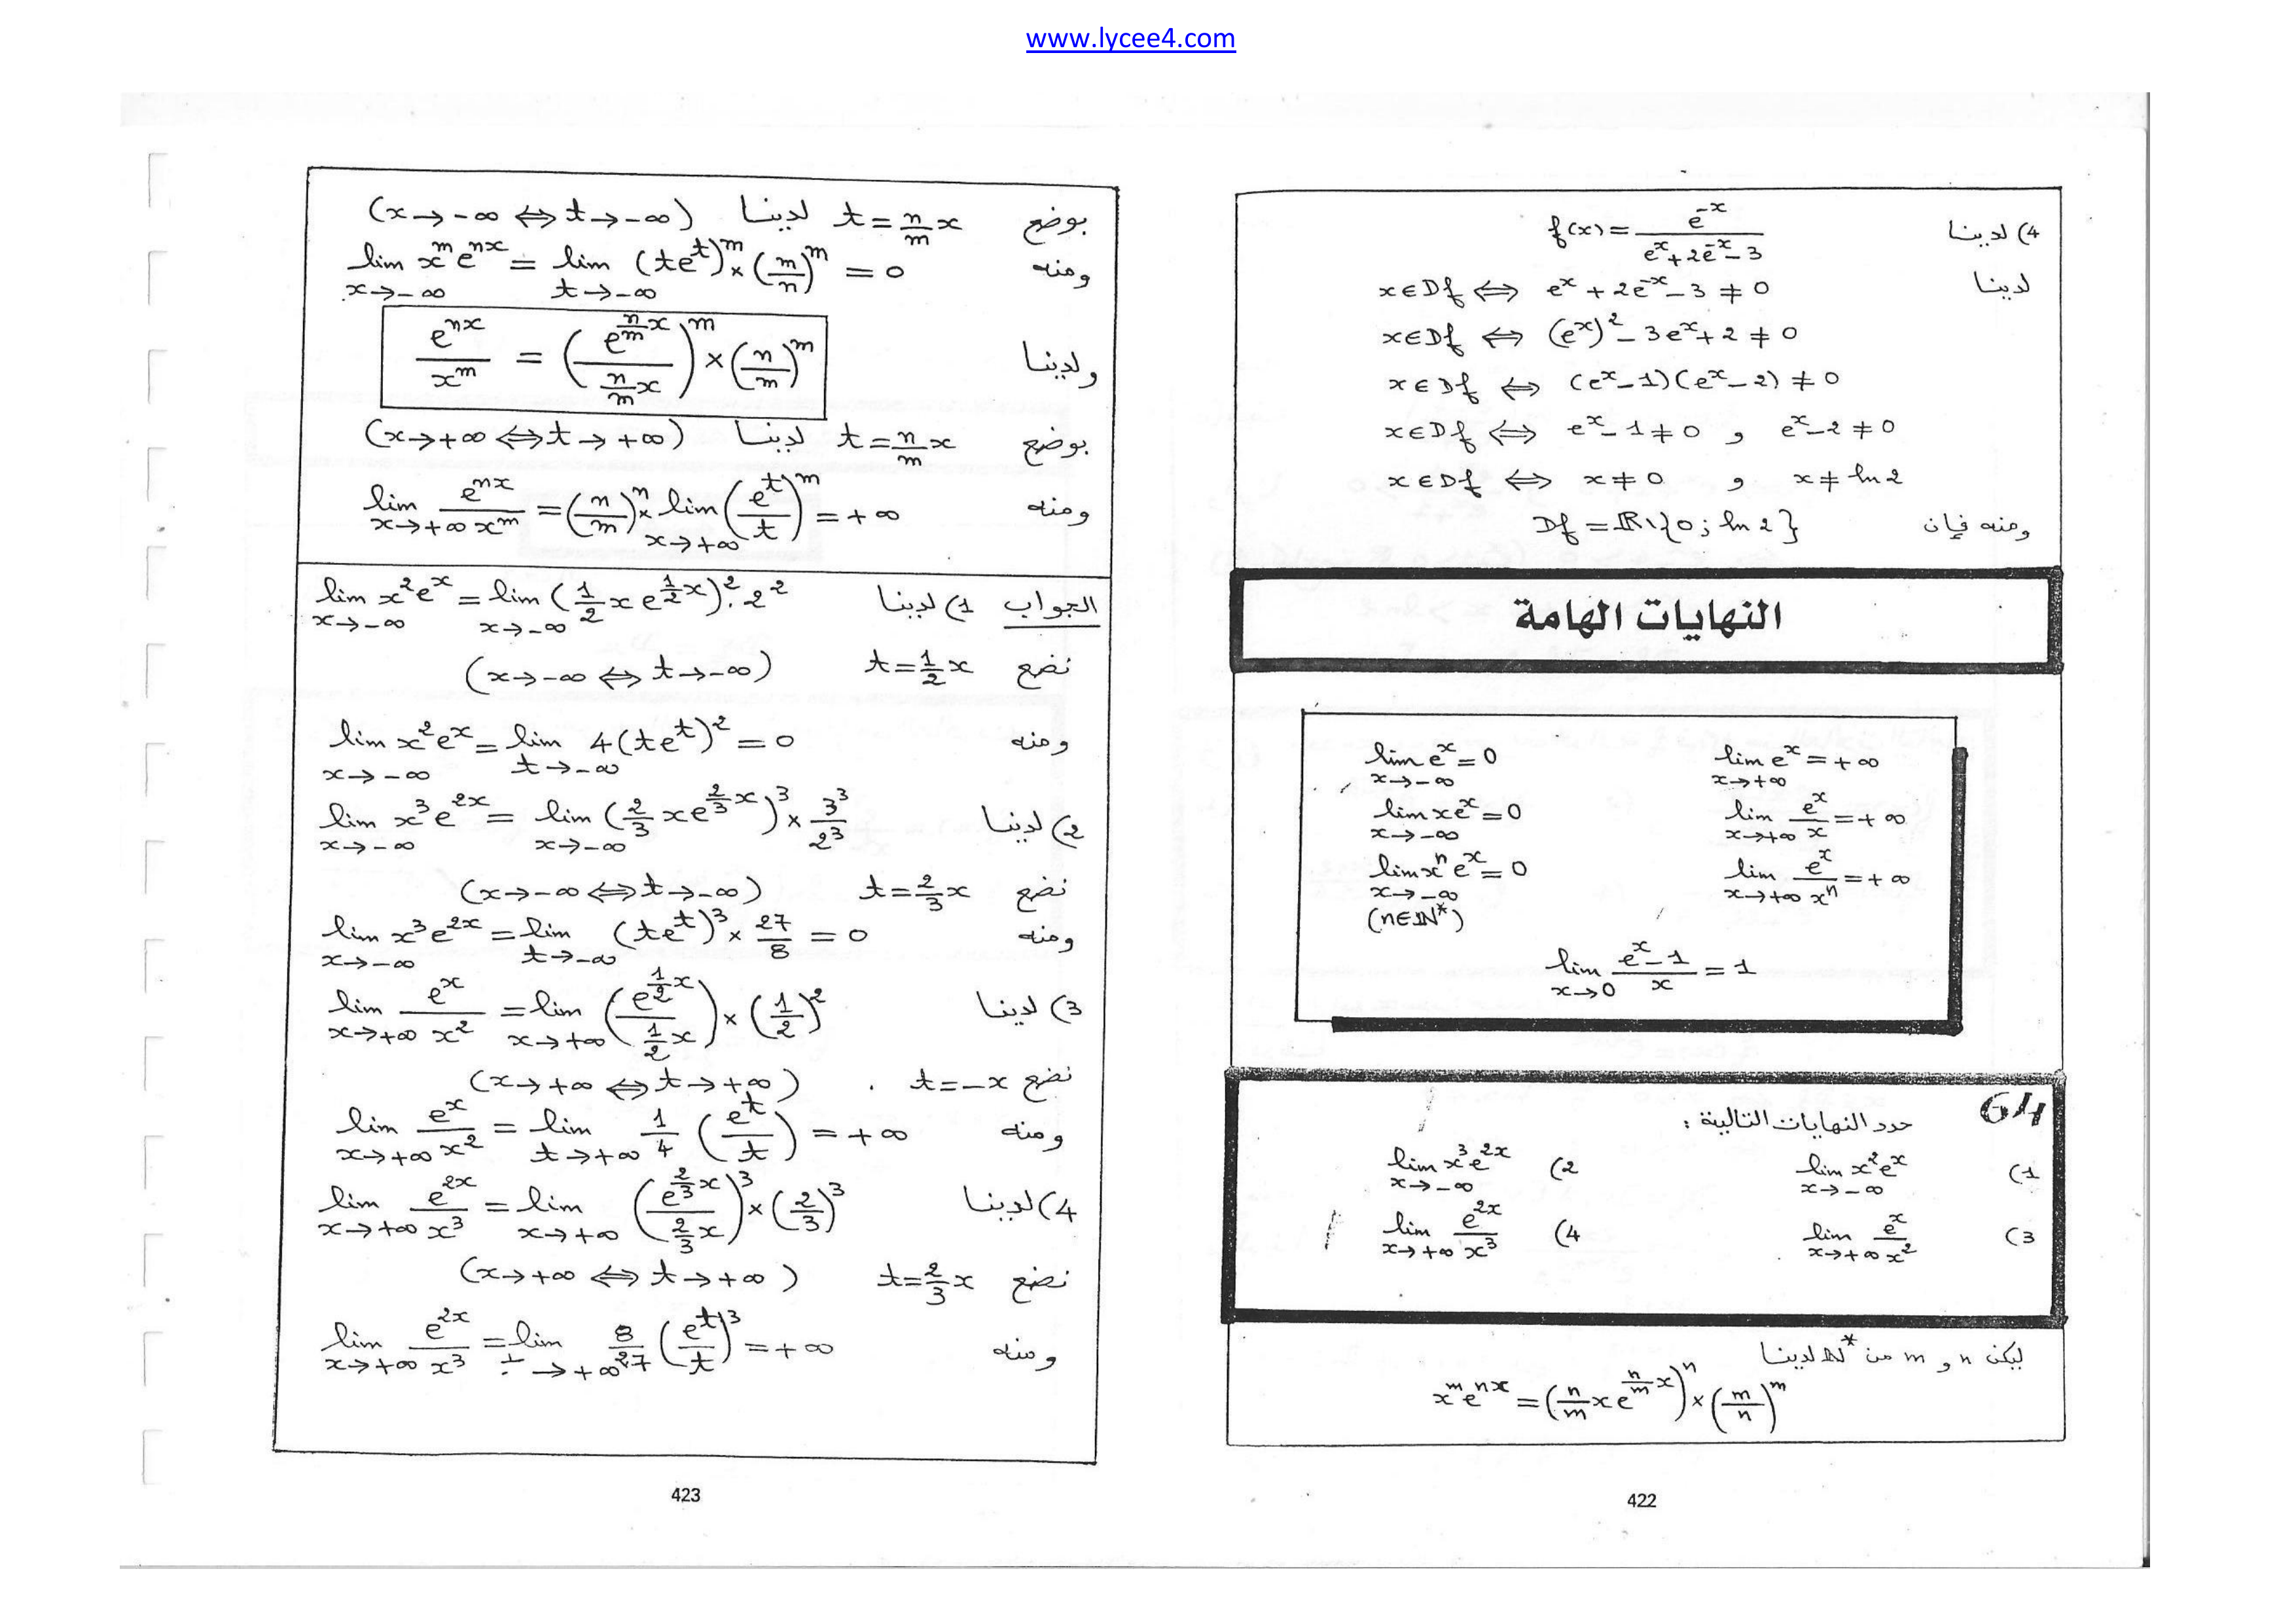 www.lycee4.com
4) لدينا f(x) = \frac{e^{-x}}{e^x + 2e^{-x} - 3}
لدينا x ∈ Df ⟺ e^x + 2e^{-x} - 3 ≠ 0
x ∈ Df ⟺ (e^x)^2 - 3e^x + 2 ≠ 0
x ∈ Df ⟺ (e^x - 1)(e^x - 2) ≠ 0
x ∈ Df ⟺ e^x - 1 ≠ 0 و e^x - 2 ≠ 0
x ∈ Df ⟺ x ≠ 0 و x ≠ ln 2
ومنه فإن Df = ℝ \ {0 ; ln 2}
النهايات الهامة
lim_{x→+∞} e^x = +∞ lim_{x→-∞} e^x = 0
lim_{x→+∞} \frac{e^x}{x} = +∞ lim_{x→-∞} x e^x = 0
lim_{x→+∞} \frac{e^x}{x^n} = +∞ lim_{x→-∞} x^n e^x = 0
(n ∈ ℕ*)
lim_{x→0} \frac{e^x - 1}{x} = 1
64 حدد النهايات التالية :
1) lim_{x→-∞} x^2 e^x 2) lim_{x→-∞} x^3 e^{2x}
3) lim_{x→+∞} \frac{e^x}{x^2} 4) lim_{x→+∞} \frac{e^{2x}}{x^3}
ليكن n و m من ℕ* لدينا
x^m e^{nx} = (\frac{n}{m} x e^{\frac{n}{m}x})^n × (\frac{m}{n})^m
422
بوضع t = \frac{n}{m} x لدينا (x → -∞ ⟺ t → -∞)
ومنه lim_{x→-∞} x^m e^{nx} = lim_{t→-∞} (t e^t)^m × (\frac{m}{n})^m = 0
ولدينا \frac{e^{nx}}{x^m} = (\frac{e^{\frac{n}{m}x}}{\frac{n}{m}x})^m × (\frac{n}{m})^m
بوضع t = \frac{n}{m} x لدينا (x → +∞ ⟺ t → +∞)
ومنه lim_{x→+∞} \frac{e^{nx}}{x^m} = (\frac{n}{m})^n × lim_{x→+∞} (\frac{e^t}{t})^m = +∞
الجواب 1) لدينا lim_{x→-∞} x^2 e^x = lim_{x→-∞} (\frac{1}{2} x e^{\frac{1}{2}x})^2 . 2^2
نضع t = \frac{1}{2} x (x → -∞ ⟺ t → -∞)
ومنه lim_{x→-∞} x^2 e^x = lim_{t→-∞} 4(t e^t)^2 = 0
2) لدينا lim_{x→-∞} x^3 e^{2x} = lim_{x→-∞} (\frac{2}{3} x e^{\frac{2}{3}x})^3 × \frac{3^3}{2^3}
نضع t = \frac{2}{3} x (x → -∞ ⟺ t → -∞)
ومنه lim_{x→-∞} x^3 e^{2x} = lim_{t→-∞} (t e^t)^3 × \frac{27}{8} = 0
3) لدينا lim_{x→+∞} \frac{e^x}{x^2} = lim_{x→+∞} (\frac{e^{\frac{1}{2}x}}{\frac{1}{2}x}) × (\frac{1}{2})^2
نضع t = -x . (x → +∞ ⟺ t → +∞)
ومنه lim_{x→+∞} \frac{e^x}{x^2} = lim_{t→+∞} \frac{1}{4} (\frac{e^t}{t}) = +∞
4) لدينا lim_{x→+∞} \frac{e^{2x}}{x^3} = lim_{x→+∞} (\frac{e^{\frac{2}{3}x}}{\frac{2}{3}x})^3 × (\frac{2}{3})^3
نضع t = \frac{2}{3} x (x → +∞ ⟺ t → +∞)
ومنه lim_{x→+∞} \frac{e^{2x}}{x^3} = lim_{t→+∞} \frac{8}{27} (\frac{e^t}{t})^3 = +∞
423